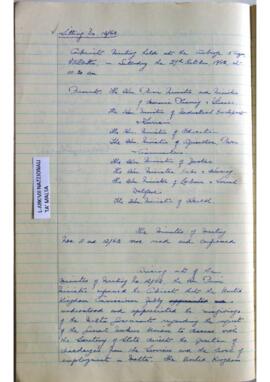 Sitting No. 14/62
Cabinet Meeting held at the Auberge d'Aragon
Valletta, on Saturday the 27th October 1962 at
10.30 am
Present: The Hon Prime Minister and Minister
of Economic Planning & Finance.
The Hon Minister of Industrial Development
& Tourism
The Hon Minister of Education
The Hon Minister of Agriculture, Power
& Communications
The Hon Minister of Justice
The Hon Minister Public Works & Housing
The Hon Minister of Labour & Social
Welfare
The Hon Minister of Health.
L-ARKIVJI NAZZJONALI
TA' MALTA
The Minutes of Meeting
Nos 11 and 12/62 were read and confirmed
Arising out of the
Minutes of Meeting No 12/62 the Hon Prime
Minister informed Cabinet that the United
Kingdom Commissioner fully
understood and appreciated the misgivings
of the Malta Government regarding the
of the
the Secretary of State the question of
discharges from the Services and the level of
employment in Malta. The United Kingdom